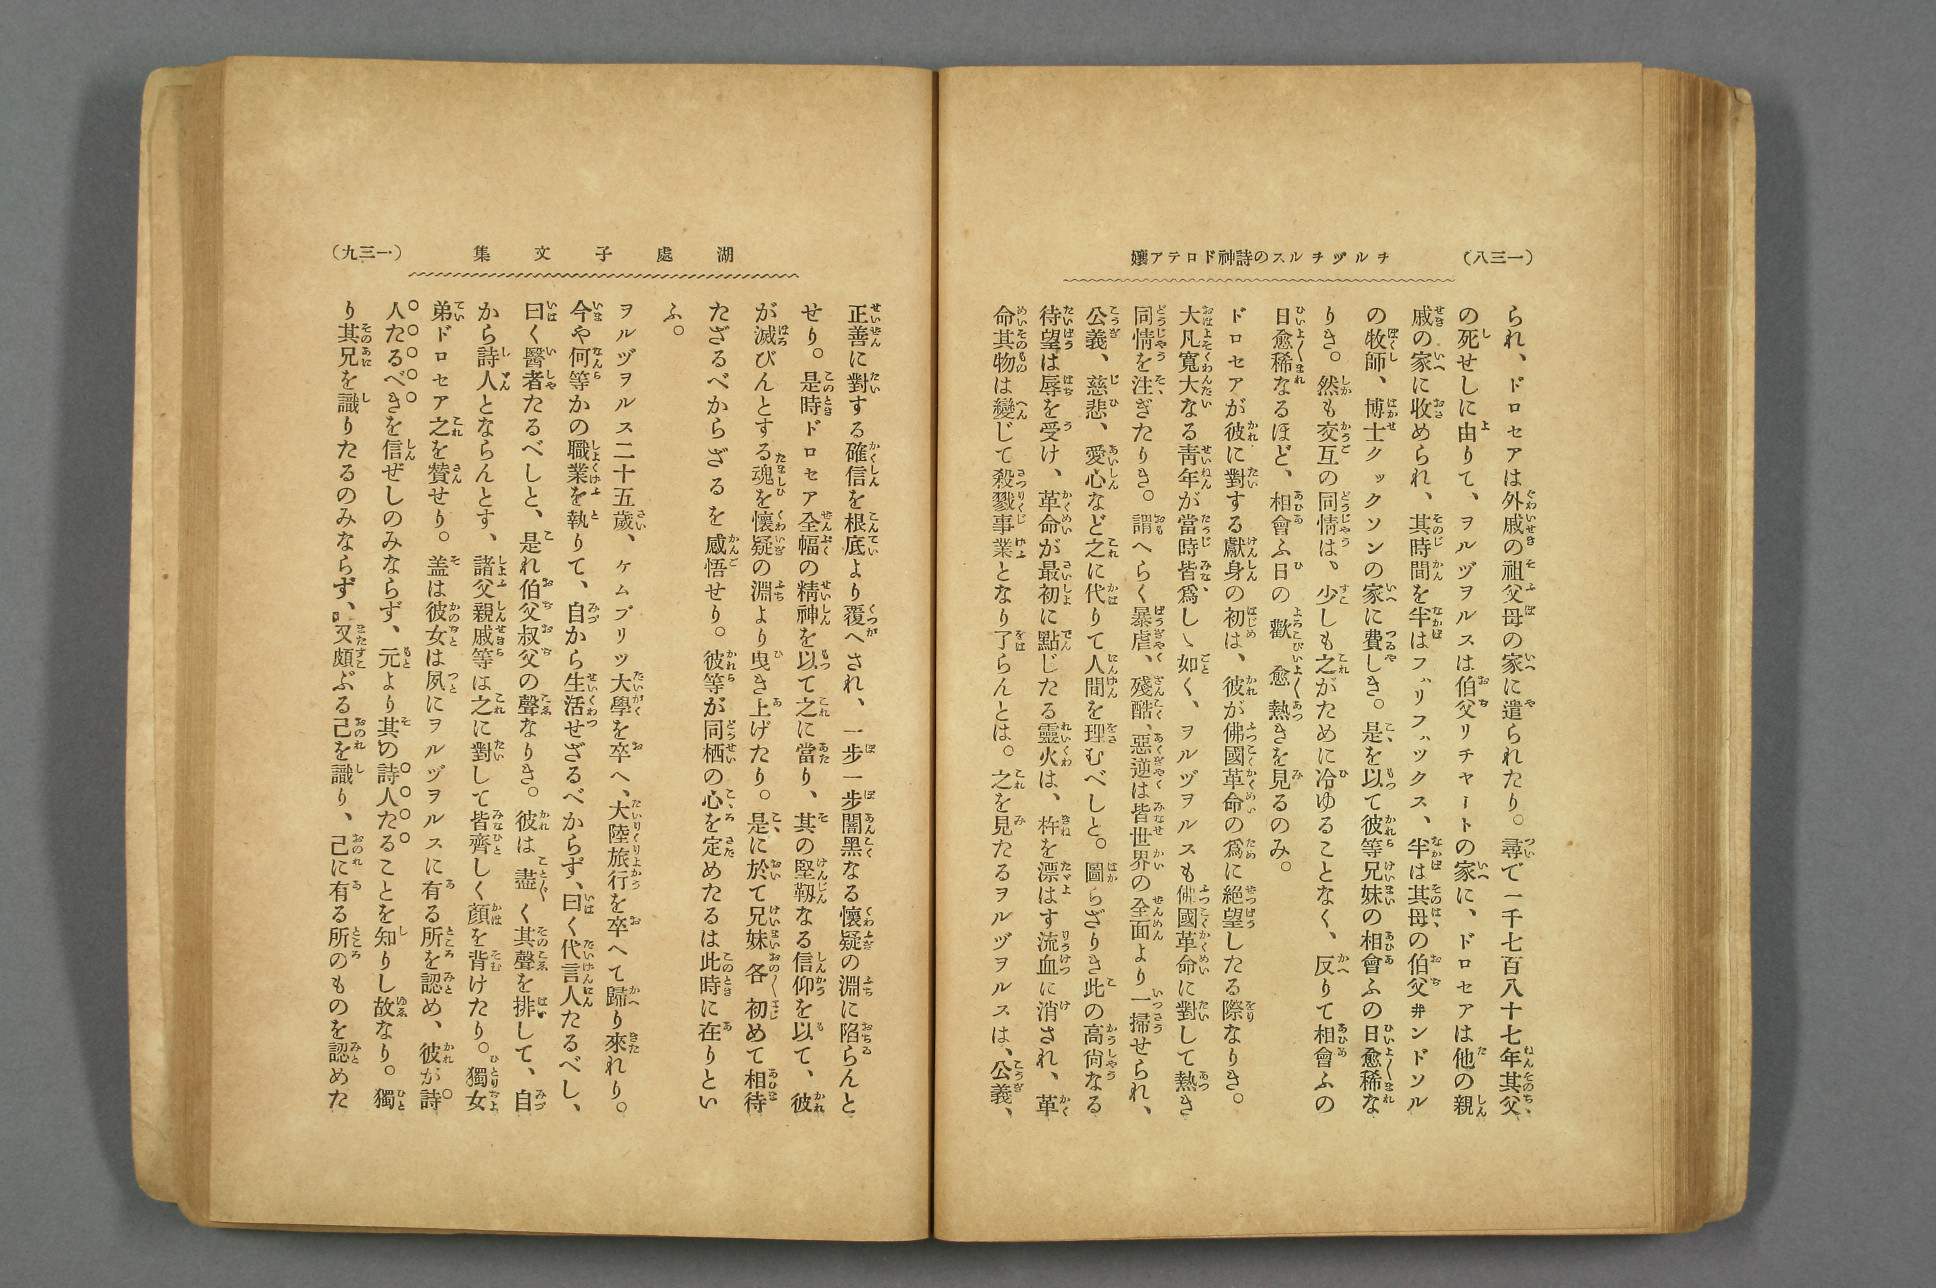 (一三八)
チルヅチルスの詩神ドロテア孃
られ、ドロセアは外戚の祖父母の家に遣られたり。尋で一千七百八十七年其父
の死せしに由りて、ヲルヅヲルスは伯父リチャートの家に、ドロセアは他の親
戚の家に收められ、其時間を半はフハリフハツクス、半は其母の伯父ヰンドソル
の牧師、博士クックソンの家に費しき。是を以て彼等兄妹の相會ふの日愈稀な
りき。然も交互の同情は、少しも之がために冷ゆることなく、反りて相會ふの
日愈稀なるほど、相會ふ日の歡愈熱きを見るのみ。
ドロセアが彼に對する獻身の初は、彼が佛國革命の爲に絶望したる際なりき。
大凡寬大なる青年が當時皆爲しゝ如く、ヲルヅヲルスも佛國革命に對して熱き
同情を注ぎたりき。謂へらく暴虐、殘酷、惡逆は皆世界の全面より一掃せられ、
公義、慈悲、愛心など之に代りて人間を理むべしと。圖らざりき此の高尙なる
待望は辱を受け、革命が最初に點じたる靈火は、杵を漂はす流血に消され、革
命其物は變じて殺戮事業となり了らんとは。之を見たるヲルヅヲルスは、公義、
湖處子文集
(一三九)
正善に對する確信を根底より覆へされ、一步一步闇黑なる懷疑の淵に陷らんと
せり。是時ドロセア全幅の精神を以て之に當り、其の堅靱なる信仰を以て、彼
が滅びんとする魂を懷疑の淵より曳き上げたり。是に於て兄妹各初めて相待
たざるべからざるを感悟せり。彼等が同栖の心を定めたるは此時に在りとい
ふ。
ヲルヅヲルス二十五歲、ケムブリツ大學を卒へ、大陸旅行を卒へて歸り來れり。
今や何等かの職業を執りて、自から生活せざるべからず、曰く代言人たるべし、
曰く醫者たるべしと、是れ伯父叔父の聲なりき。彼は盡く其聲を排して、自
から詩人とならんとす、諸父親戚等は之に對して皆齊しく顏を背けたり。獨女
弟ドロセア之を贊せり。盖は彼女は夙にヲルヅヲルスに有る所を認め、彼が詩
人たるべきを信ぜしのみならず、元より其の詩人たることを知りし故なり。獨
り其兄を識りたるのみならず、又頗ぶる己を識り、己に有る所のものを認めた